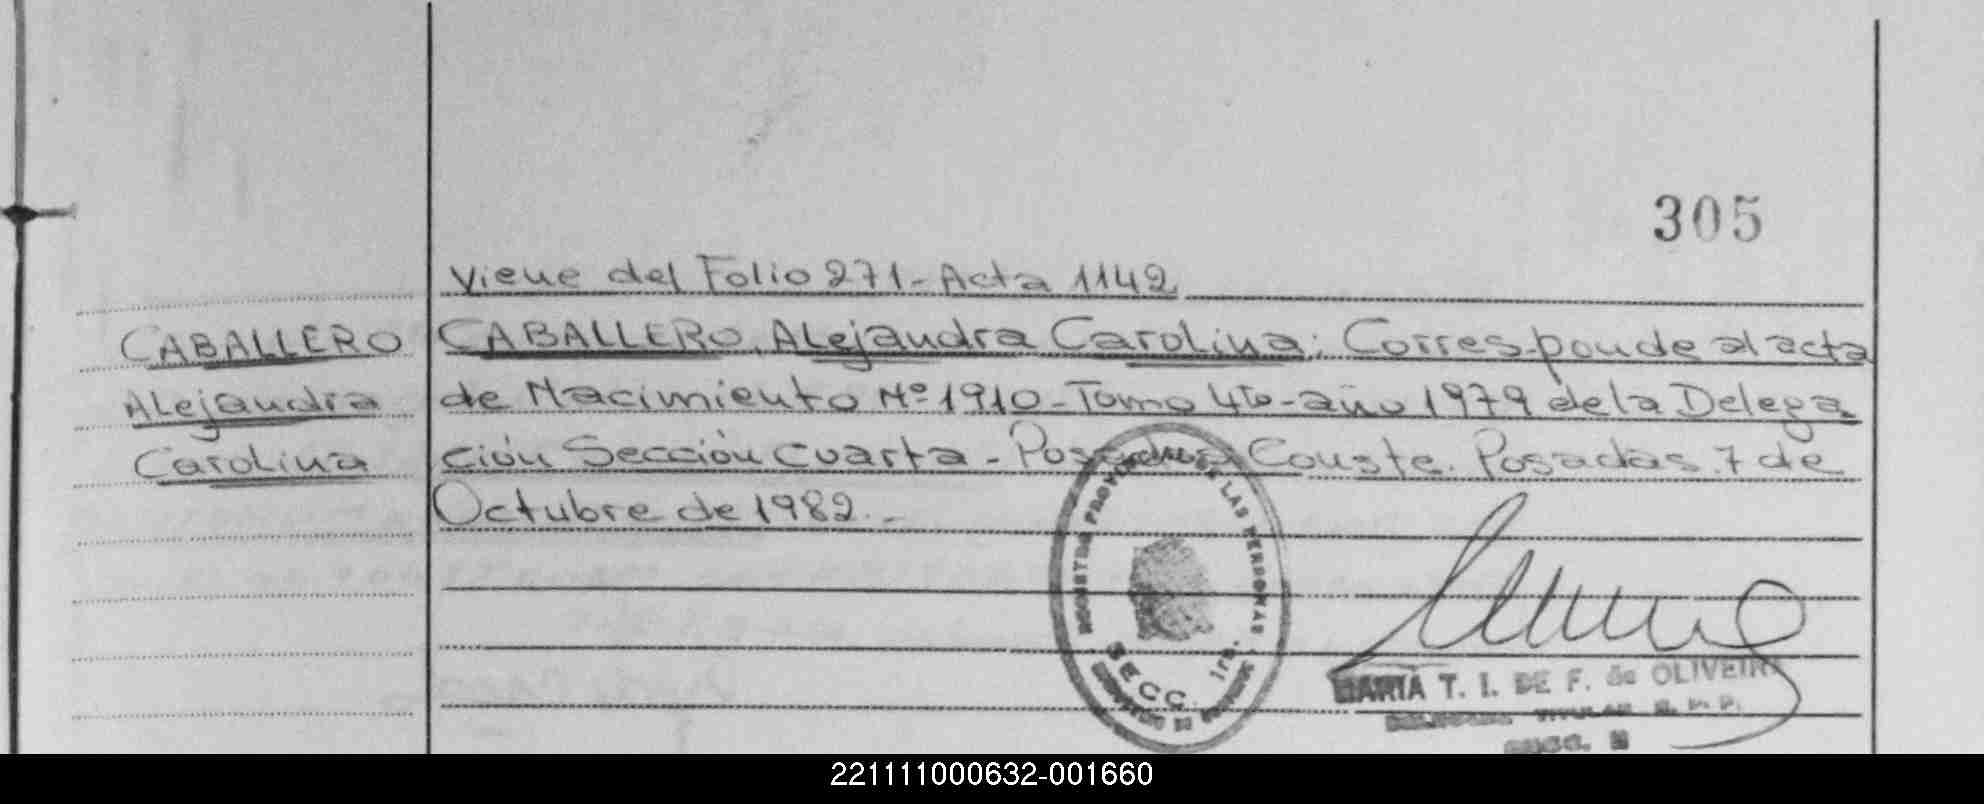 305
Viene del Folio 271-Acta 1142
CABALLERO
Alejandra
Carolina
CABALLERO, Alejandra Carolina: Corresponde al acta
de Nacimiento Nº 1910-Tomo 4to-año 1979 de la Delega
ción Sección Cuarta - Posadas Conste. Posadas. 7 de
Octubre de 1982.-
REGISTRO PROVINCIAL DE LAS PERSONAS
SECC. 1ra.
MARIA T. I. DE F. de OLIVEIRA
TITULAR R. P. P.
SECC.
221111000632-001660